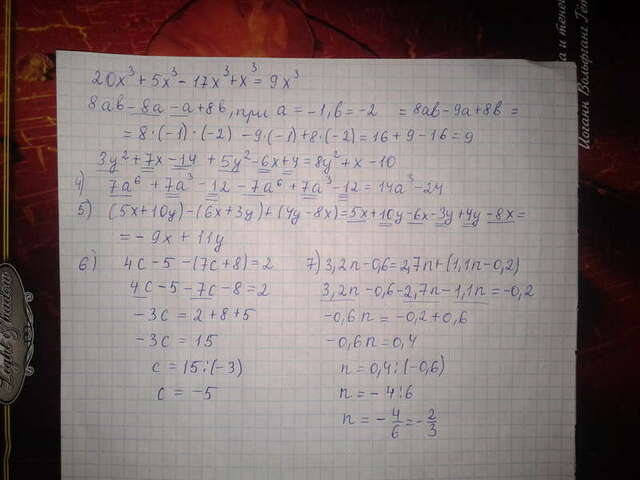 20x³+5x³-17x³+x³=9x³
8ab-8a-a+8b, при a=-1, b=-2 =8ab-9a+8b=
=8·(-1)·(-2)-9·(-1)+8·(-2)=16+9-16=9
3y²+7x-14+5y²-6x+4=8y²+x-10
4) 7a⁶+7a³-12-7a⁶+7a³-12=14a³-24
5) (5x+10y)-(6x+3y)+(4y-8x)=5x+10y-6x-3y+4y-8x=
=-9x+11y
6) 4c-5-(7c+8)=2
4c-5-7c-8=2
-3c=2+8+5
-3c=15
c=15:(-3)
c=-5
7) 3,2n-0,6=2,7n+(1,1n-0,2)
3,2n-0,6-2,7n-1,1n=-0,2
-0,6n=-0,2+0,6
-0,6n=0,4
n=0,4:(-0,6)
n=-4:6
n=-4/6=-2/3
и тене
Иоганн Вольфганг Гёт
Light & Shadow